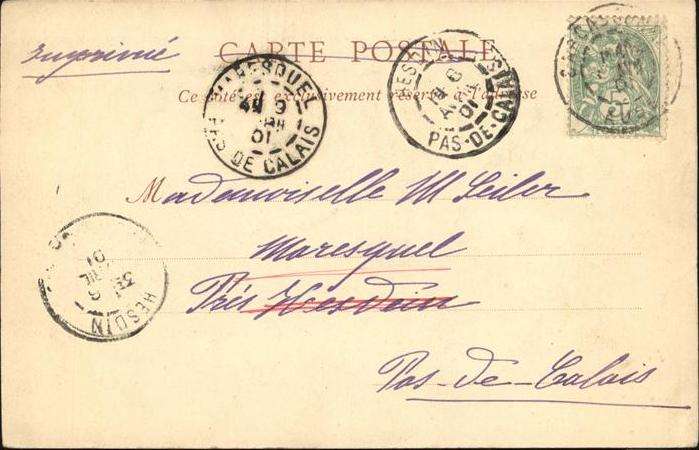 Imprimé
CARTE POSTALE
Ce côté est exclusivement réservé à l'adresse
MARESQUEL
9
AVRIL
01
PAS DE CALAIS
HESDIN
6
AVRIL
01
PAS-DE-CALAIS
Mademoiselle M Seiler
Maresquel
Près Hesdin
Pas-de-Calais
HESDIN
6
01